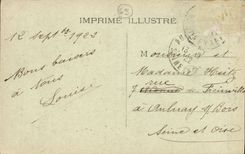 IMPRIMÉ ILLUSTRÉ
12 Septbre 1923
Bons baisers
à tous
Louise
Monsieur et
Madame
rue
à Aulnay s/ Bois
Seine et Oise